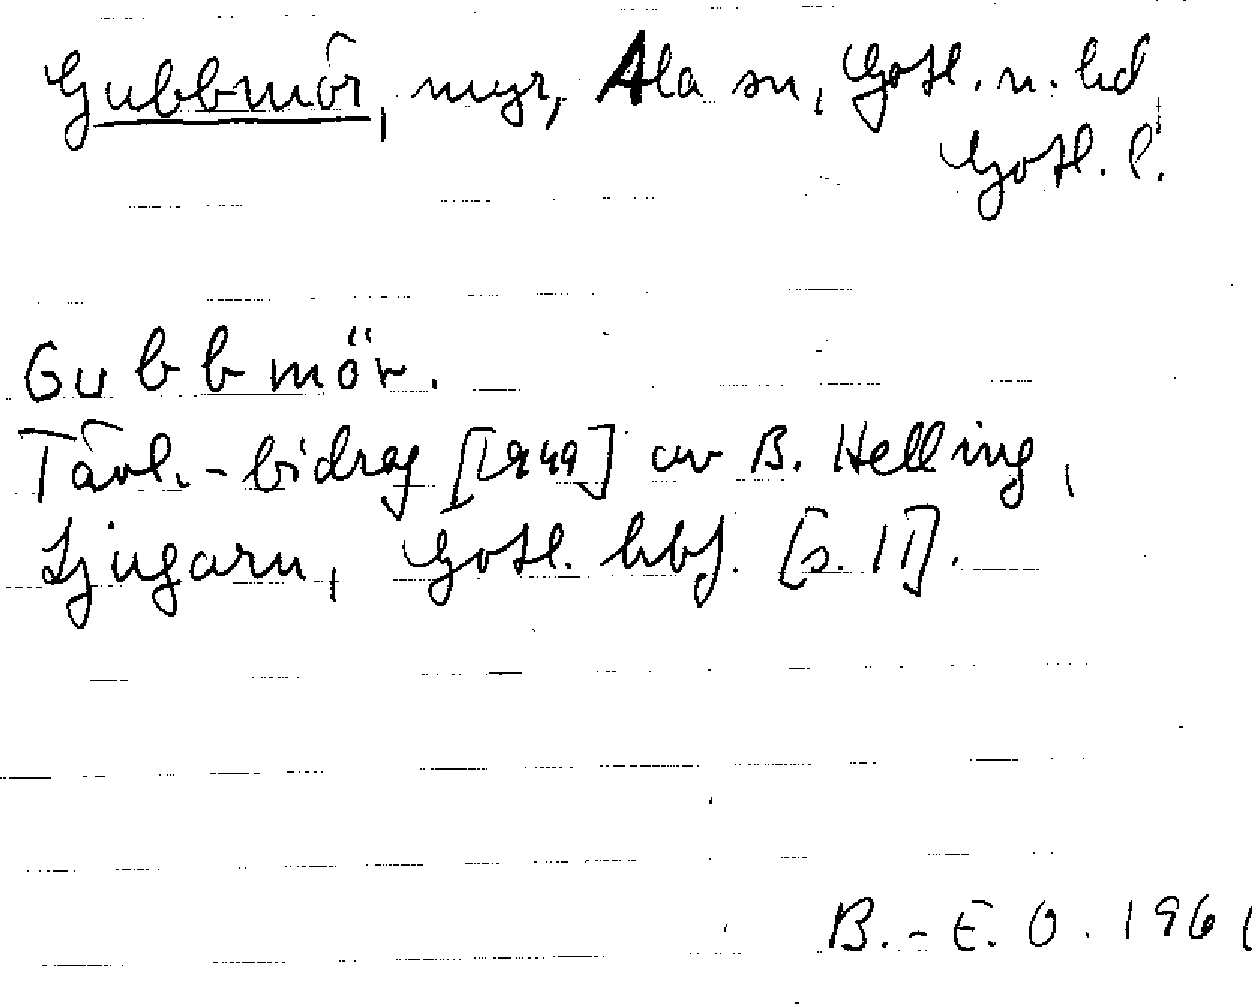 Gubbmör, myr, Ala sn, Gotl. n. hd,
Gotl. l.
Gubbmör.
Tävl.-bidrag [1949] av B. Helling,
Ljugarn, Gotl. hbf. [s. 11].
B.-E. O. 196